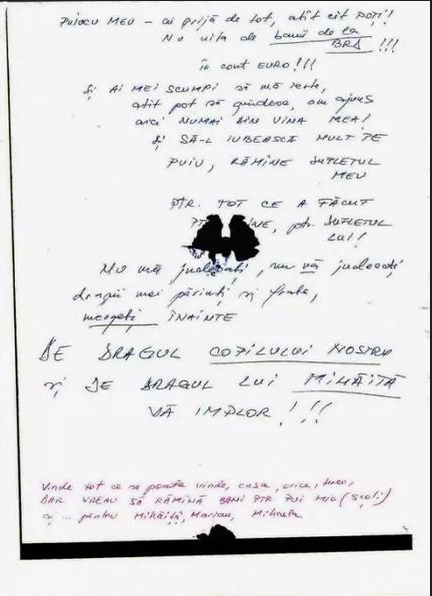 PUIUCU MEU – ai grijă de tot, atît cît POȚI!
Nu uita de banii de la
BRD !!!
în cont EURO!!!
Și AI MEI SCUMPI să mă ierte,
atît pot să gîndesc, am ajuns
aici NUMAI DIN VINA MEA!
Și SĂ-L IUBEASCĂ MULT PE
PUIU, RĂMÎNE SUFLETUL
MEU
PTR. TOT CE A FĂCUT
ptr. SUFLETUL
LUI!
Nu mă judecați, nu vă judecați,
dragii mei părinți și frate,
mergeți ÎNAINTE
DE DRAGUL COPILULUI NOSTRU
și DE DRAGUL LUI MIHĂIȚĂ
VĂ IMPLOR!!!
Vinde tot ce se poate vinde, casa, orice,
DAR VREAU SĂ RĂMÎNĂ BANI PTR PUI MIC (școli)
și... pentru Mihăiță, Marian, Mihaela